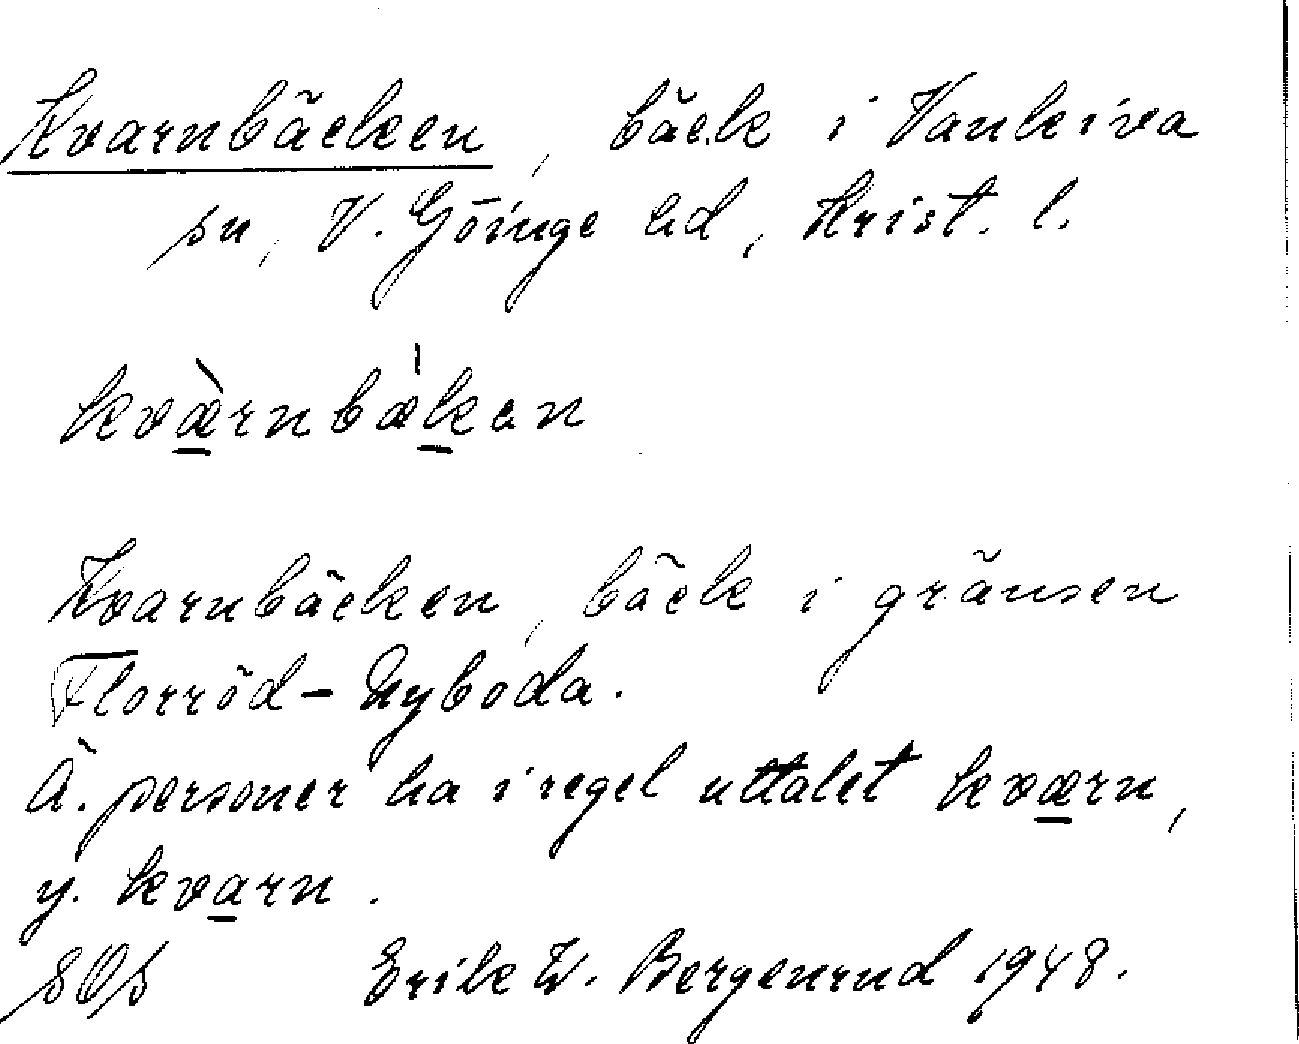 Kvarnbäcken, bäck i Vankiva
sn, V. Göinge hd, Krist. l.
kvæ̀rnbækan
Kvarnbäcken, bäck i gränsen
Florröd - Nyboda.
Ä. personer ha i regel uttalet kværn,
y. kvarn.
SOS Erik W. Bergenrud 1948.